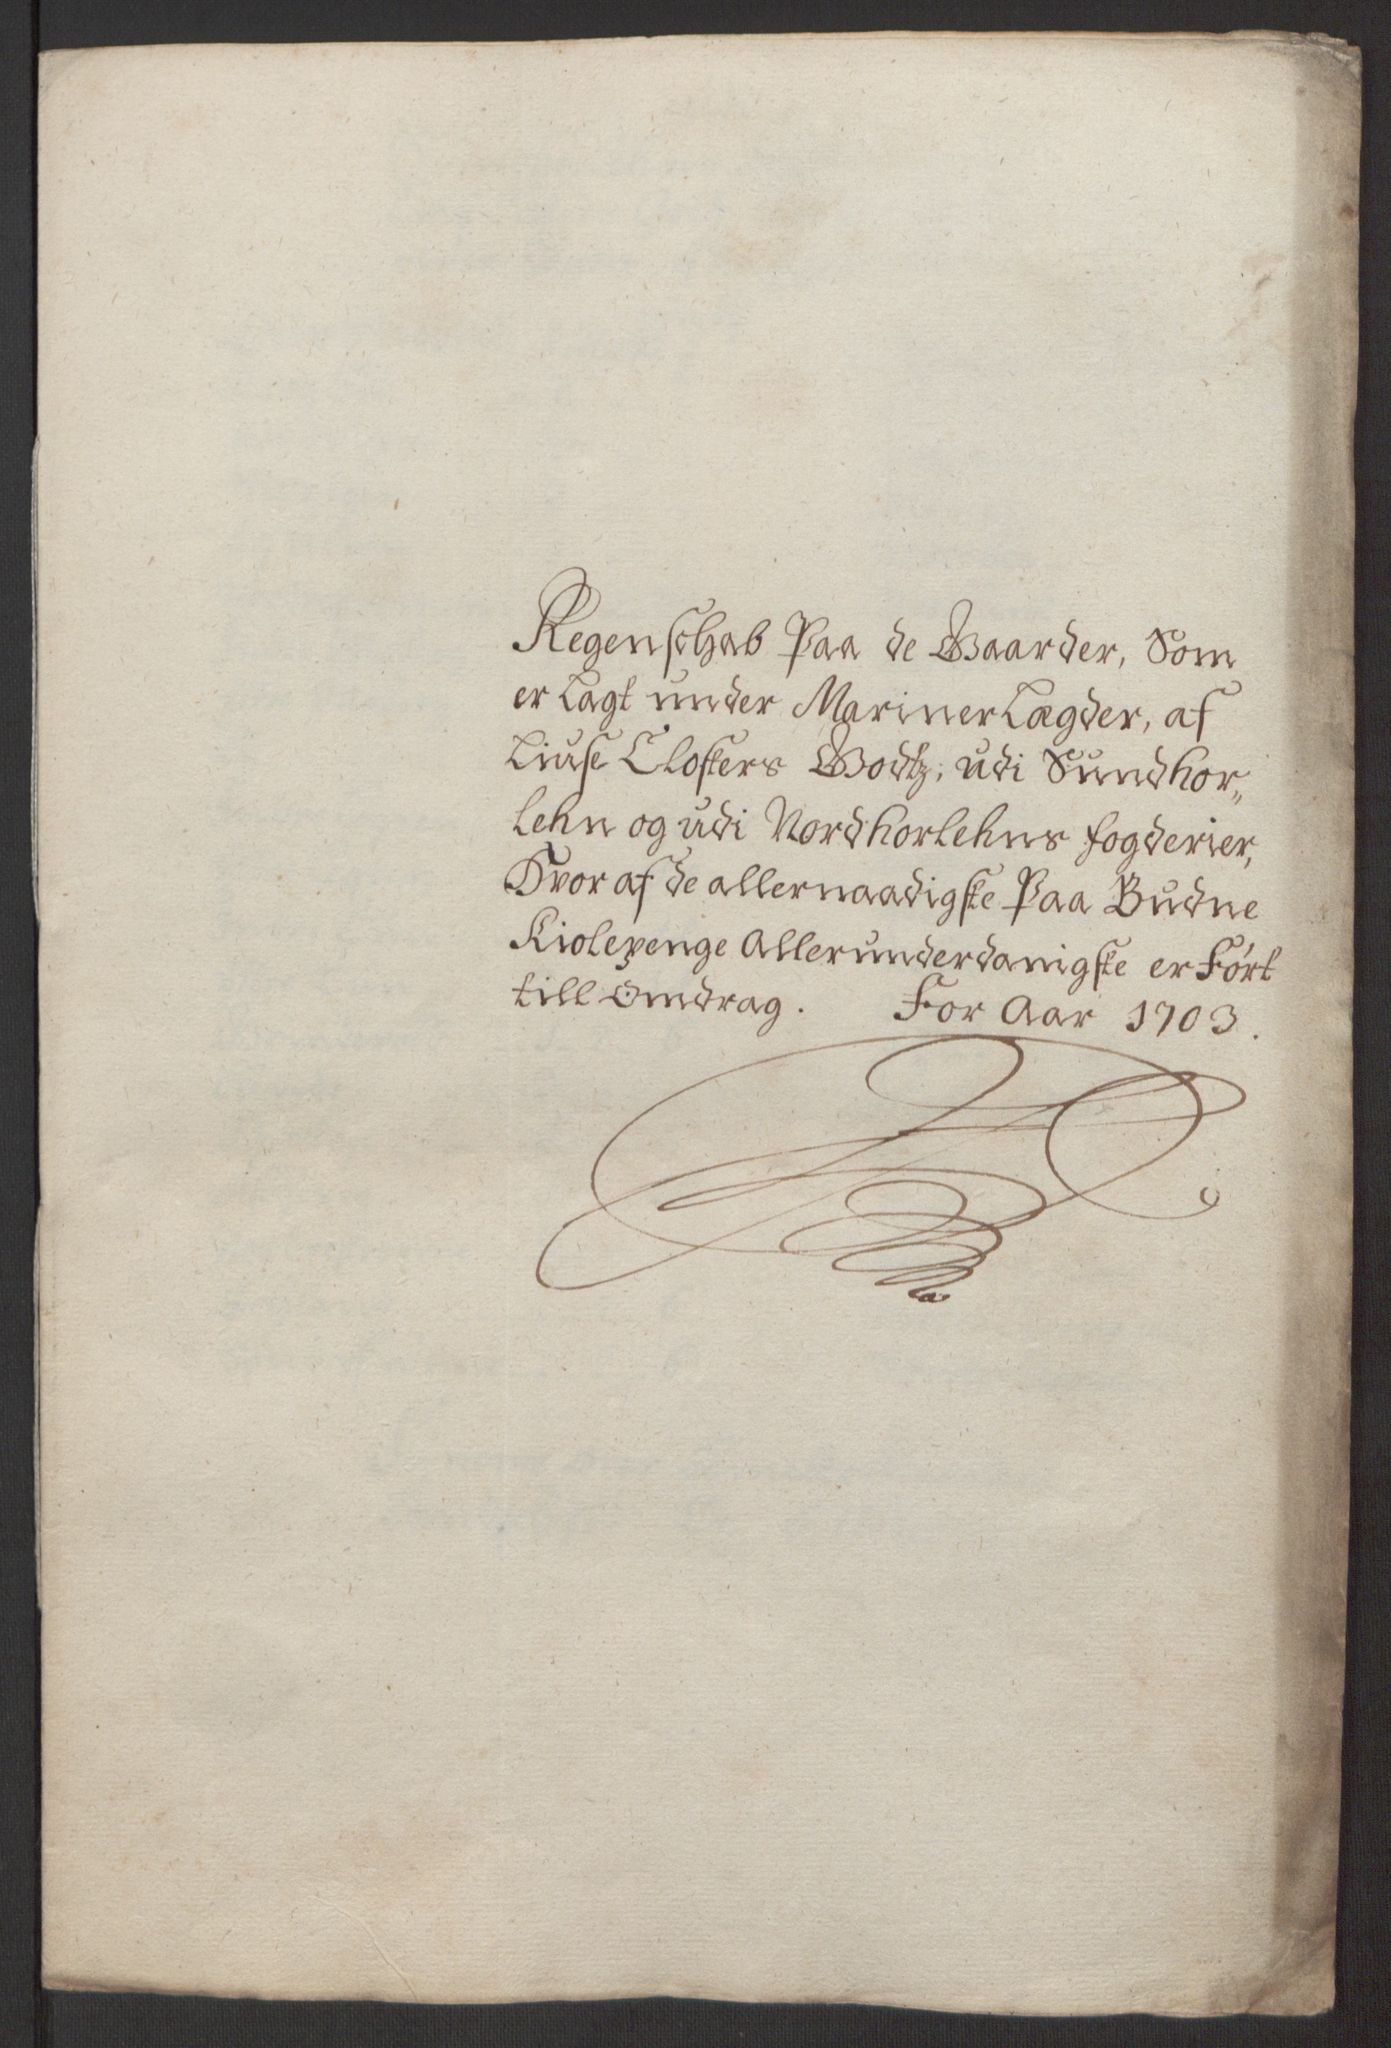 Regenschab Paa de Gaarder, Som
er Lagt under Mariner Lægder, af
Liuse Closters Godtz, udi Sundhor„
lehn og udi Nordhorlehns fogderier,
Hvor af de allernaadigste Paa Budne
Kiolepenge Allerunderdanigste er Ført
till Omdrag. For Aar 1703.